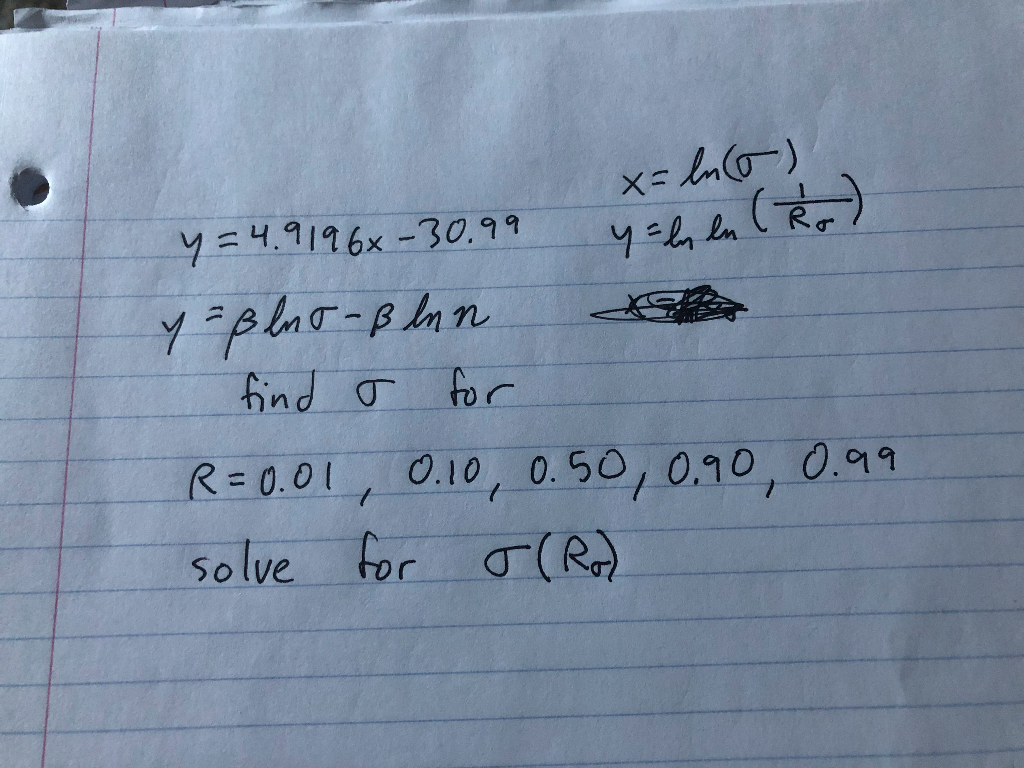 x = ln(σ)
y = 4.9196x - 30.99
y = ln ln (1/Rσ)
y = β ln σ - β ln n
find σ for
R = 0.01, 0.10, 0.50, 0.90, 0.99
solve for σ(Rσ)